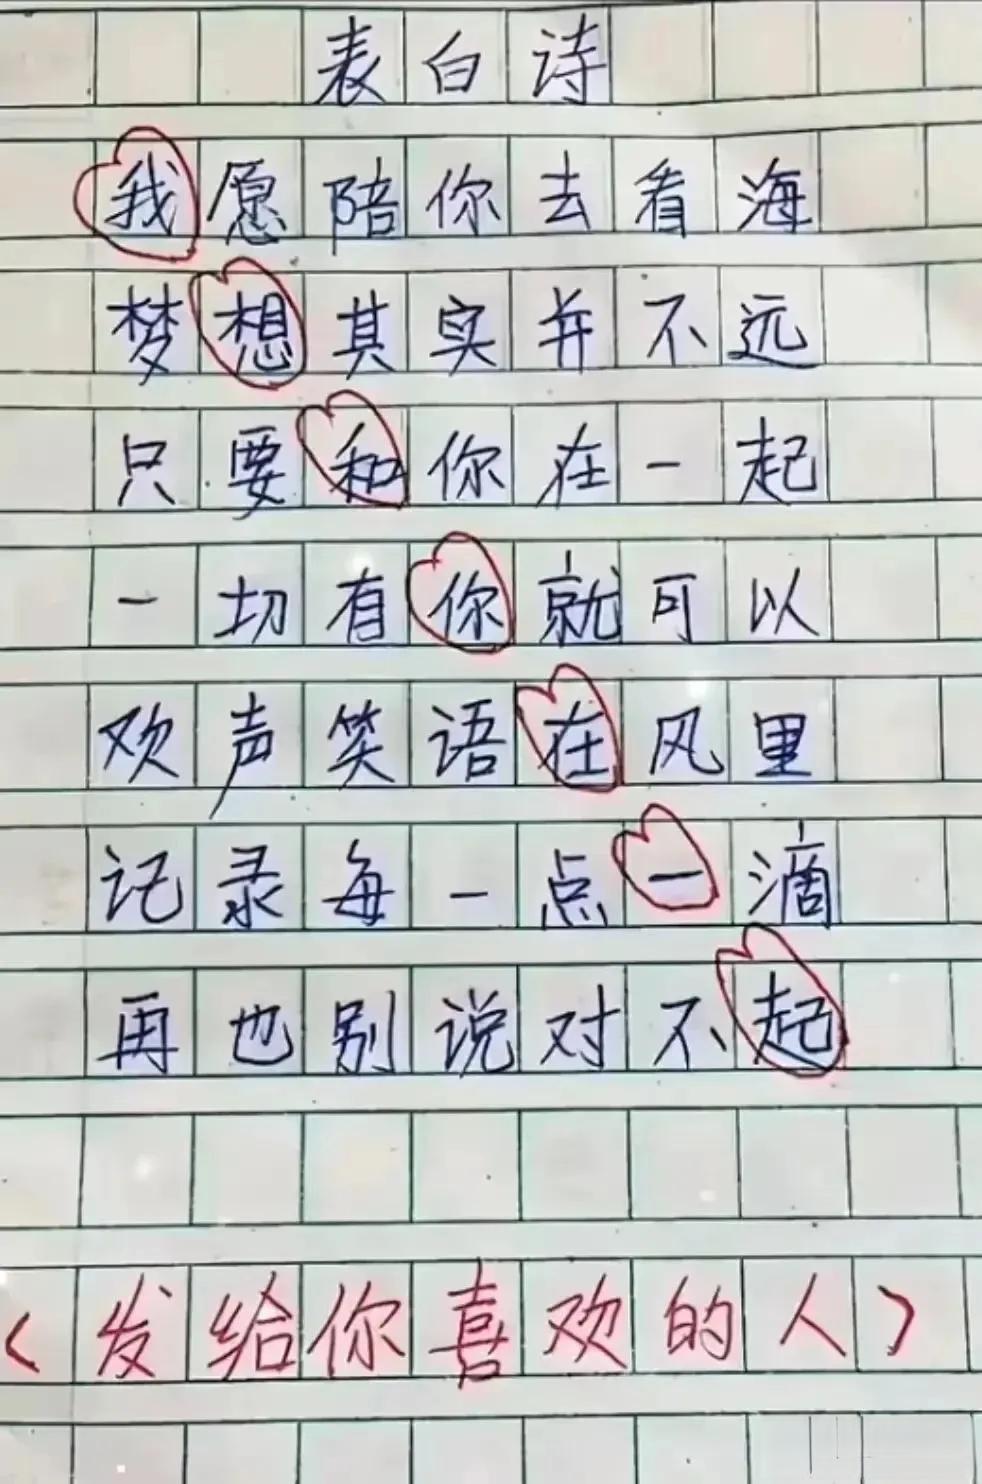 表白诗
我愿陪你去看海
梦想其实并不远
只要和你在一起
一切有你就可以
欢声笑语在风里
记录每一点一滴
再也别说对不起
<发给你喜欢的人>